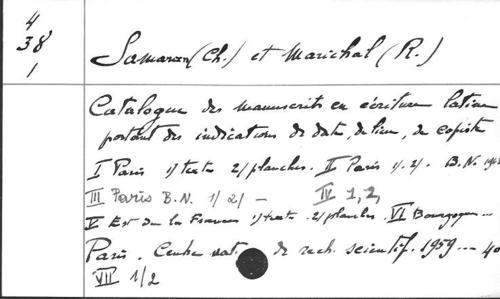 4
38
1
Samaran (Ch.) et Marichal (R.)
Catalogue des manuscrits en écriture latine
portant des indications de date, de lieu, de copiste
I Paris 1/ texte 2/ planches. II Paris 1/. 2/. B.N.
III Paris B.N. 1/ 2/ — IV 1, 2,
V Est de la France 1/ texte 2/ planches. VI Bourgogne...
Paris. Centre nat. de rech. scientif. 1959 ... 40
VII 1/2